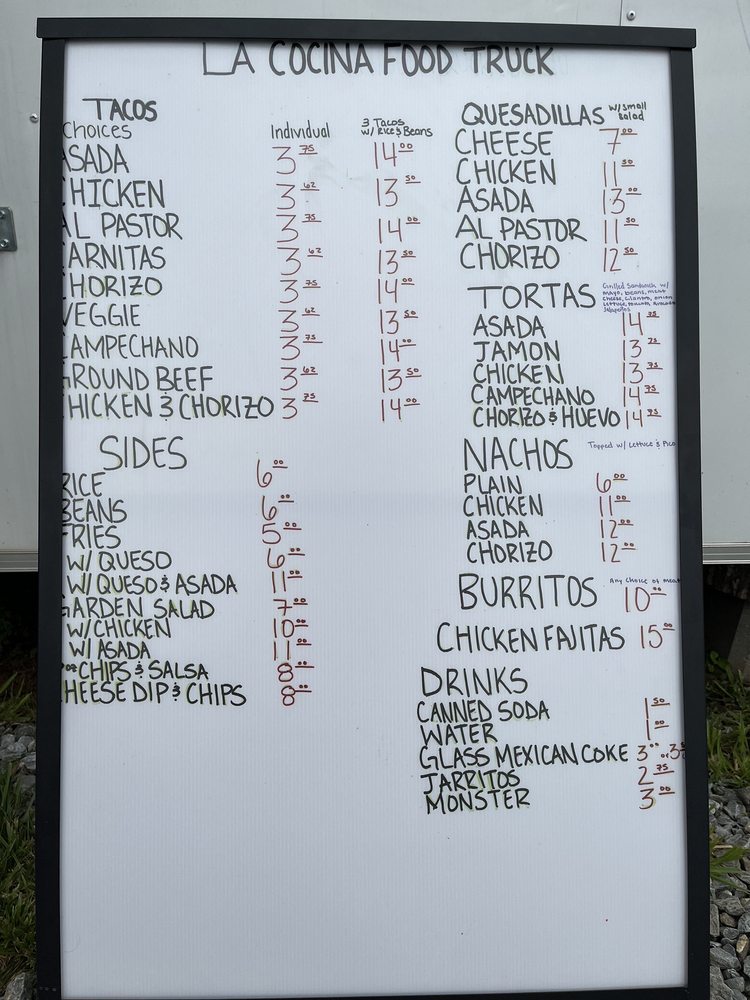 LA COCINA FOOD TRUCK
TACOS
Choices Individual 3 Tacos w/ Rice & Beans
ASADA 3 75 14 00
CHICKEN 3 62 13 50
AL PASTOR 3 75 14 00
CARNITAS 3 62 13 50
CHORIZO 3 75 14 00
VEGGIE 3 62 13 50
CAMPECHANO 3 75 14 00
GROUND BEEF 3 62 13 50
CHICKEN & CHORIZO 3 75 14 00
SIDES
RICE 6 00
BEANS 6 00
FRIES 5 00
W/ QUESO 6 00
W/ QUESO & ASADA 11 00
GARDEN SALAD 7 00
W/ CHICKEN 10 00
W/ ASADA 11 00
CHIPS & SALSA 8 00
CHEESE DIP & CHIPS 8 00
QUESADILLAS w/ small salad
CHEESE 7 00
CHICKEN 11 50
ASADA 13 00
AL PASTOR 11 50
CHORIZO 12 50
TORTAS Grilled Sandwich w/
mayo, beans, meat
cheese, cilantro, onion
lettuce, tomato, avocado
Jalapeños
ASADA 14 75
JAMON 13 75
CHICKEN 13 75
CAMPECHANO 14 75
CHORIZO & HUEVO 14 75
NACHOS Topped w/ Lettuce & Pico
PLAIN 6 00
CHICKEN 11 00
ASADA 12 00
CHORIZO 12 00
BURRITOS Any choice of meat
10 00
CHICKEN FAJITAS 15 00
DRINKS
CANNED SODA 1 50
WATER 1 00
GLASS MEXICAN COKE 3 00 or 3
JARRITOS 2 75
MONSTER 3 00